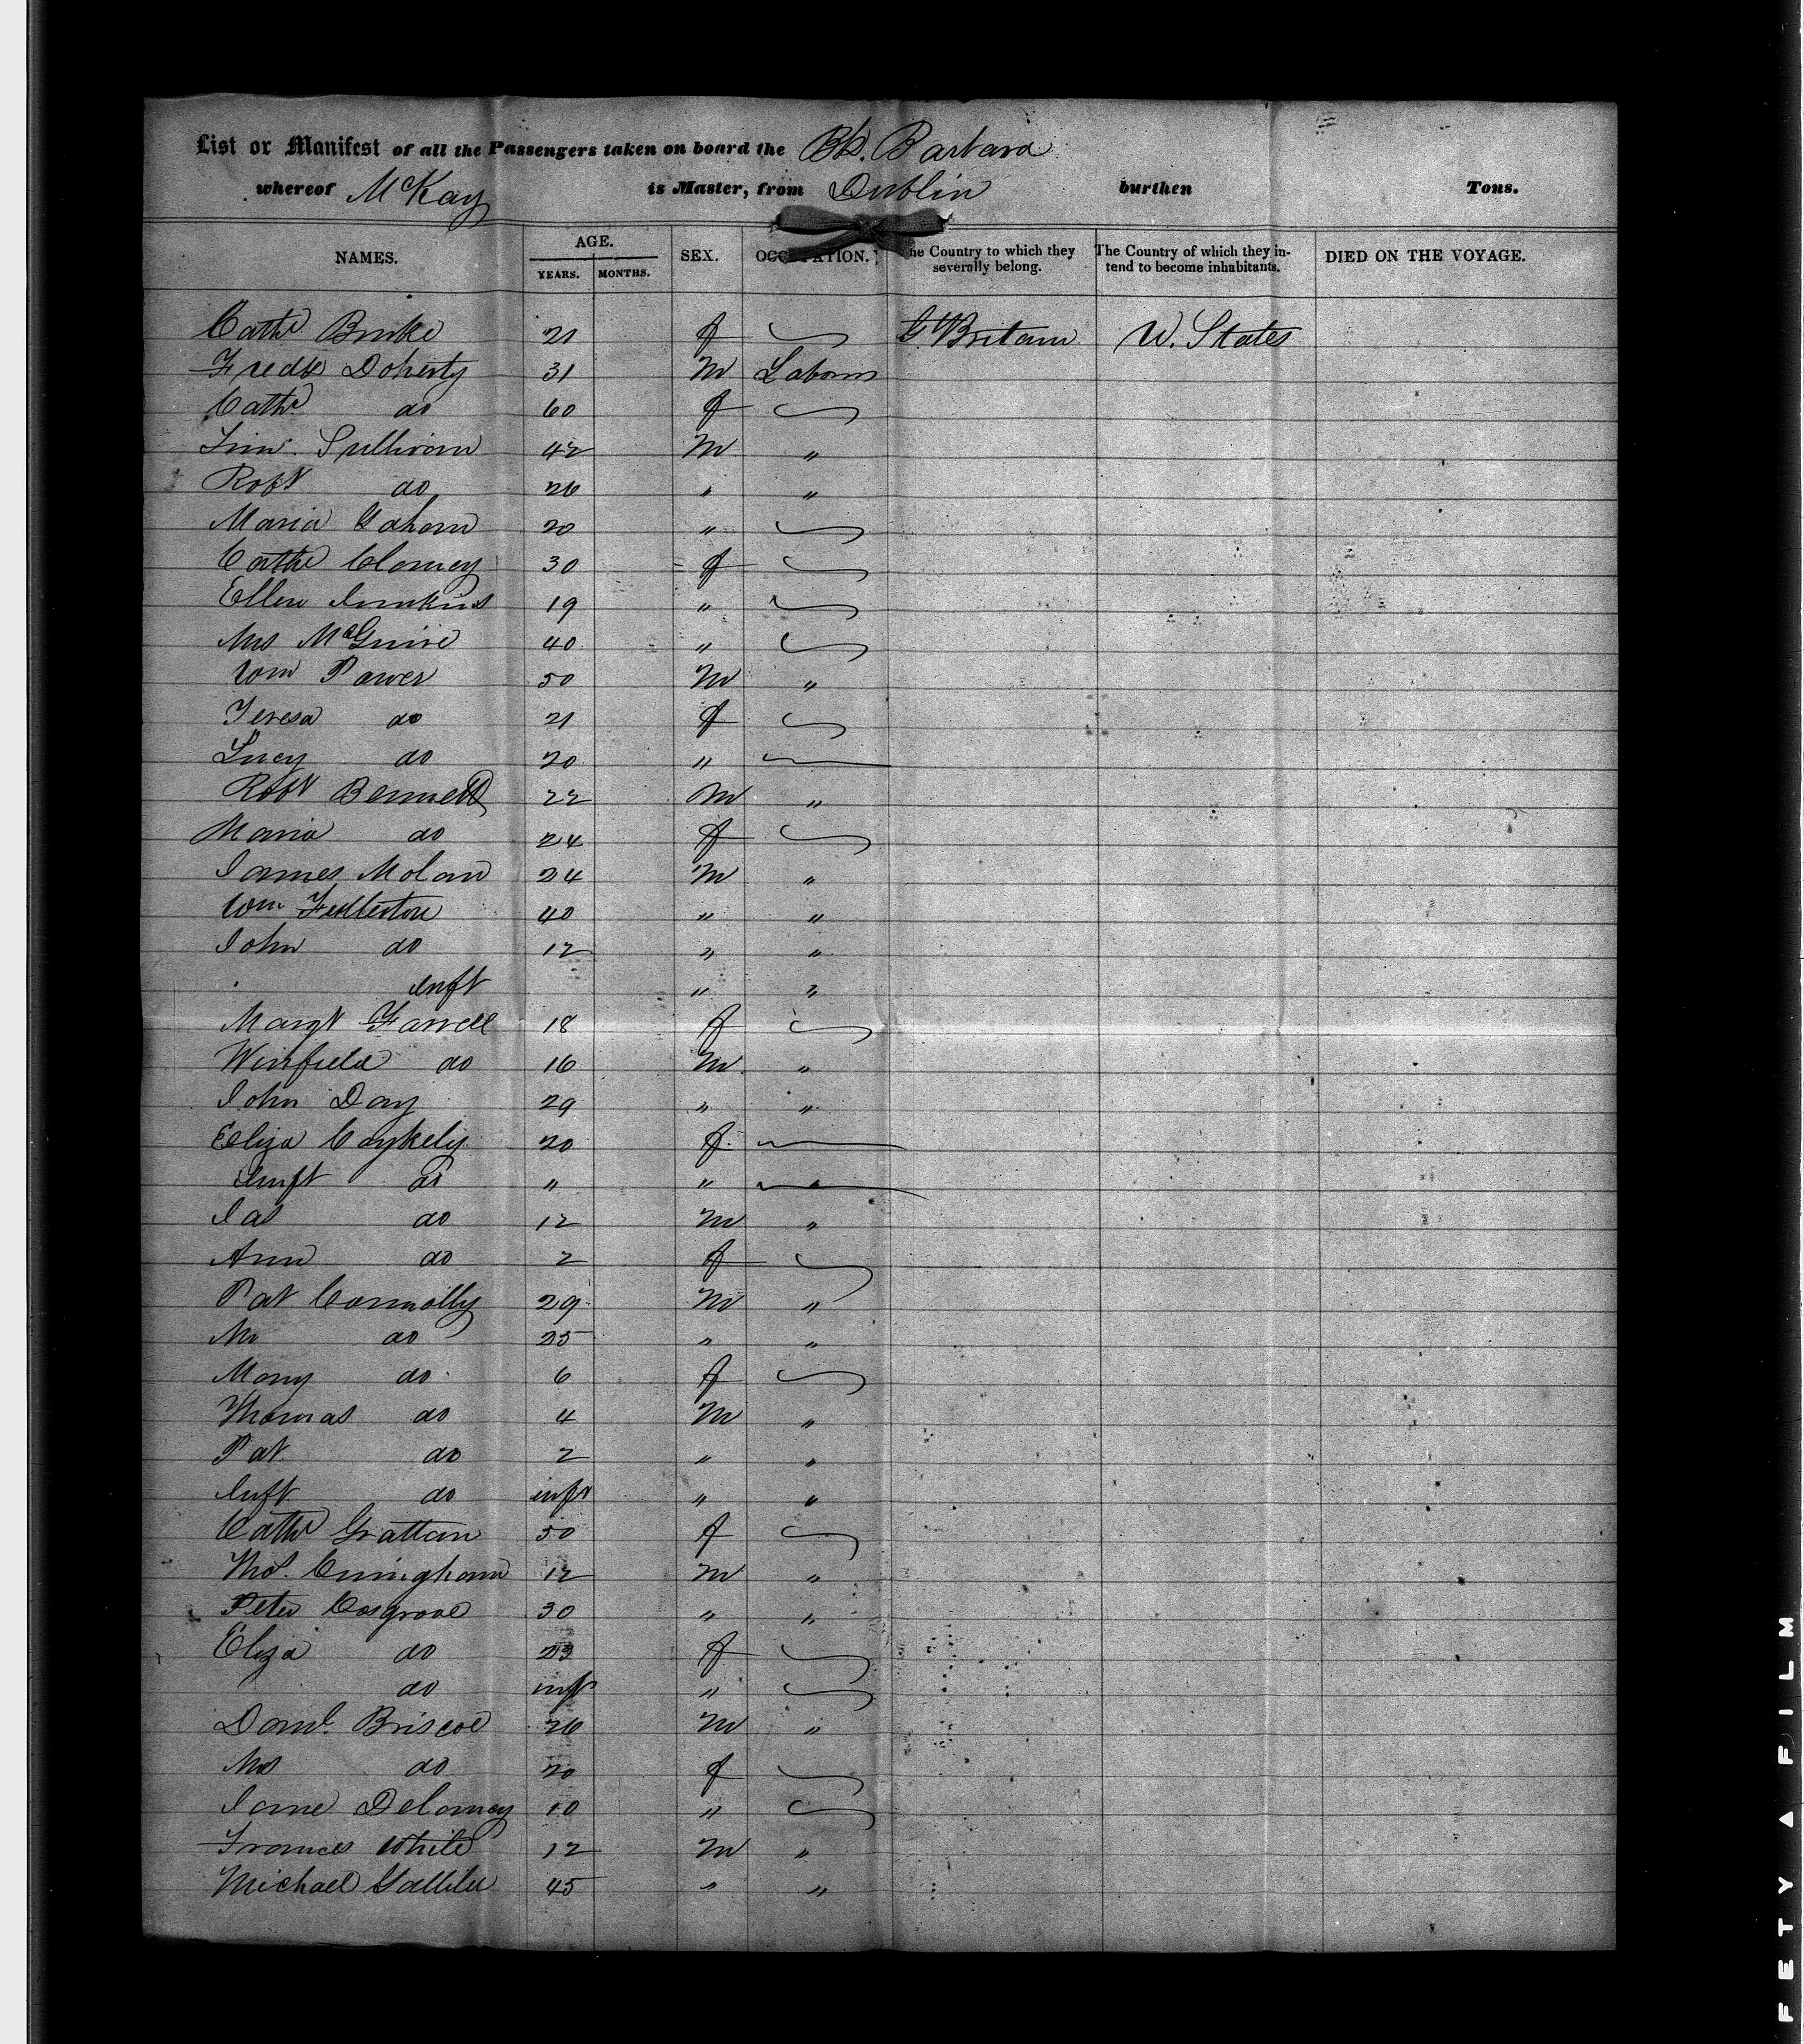 List or Manifest of all the Passengers taken on board the Bk. Barbara
whereof McKay is Master, from Dublin burthen Tons.
NAMES. AGE. YEARS. MONTHS. SEX. OCCUPATION. The Country to which they severally belong. The Country of which they intend to become inhabitants. DIED ON THE VOYAGE.
Cathe Burke 21 f Gt Britain U. States
Fredk Doherty 31 M Laborer
Cathe do 60 f
Jim. Sullivan 42 M "
Robt do 26 " "
Maria Gahern 20 "
Cathe Clancey 30 f
Ellen Jenkins 19 "
Mrs McGuire 40 "
Wm Power 50 M "
Teresa do 21 f
Lucy do 20 "
Robt Bennett 22 M "
Maria do 24 f
James Molan 24 M "
Wm Fedleston 40 " "
John do 12 " "
Inft " "
Margt Farrell 18 f
Winfield do 16 M "
John Day 29 " "
Eliza Coykely 20 f
Inft do " "
Jas do 12 M "
Ann do 2 f
Pat Connolly 29 M "
Mr do 25 " "
Mary do 6 f
Thomas do 4 M "
Pat do 2 " "
Inft do inft " "
Cathe Grattan 50 f
Thos. Cuningham 12 M "
Peter Cosgrove 30 " "
Eliza do 23 f
do inft "
Danl. Briscoe 26 M "
Mrs do 20 f
Jane Delaney 10 "
Frances White 12 M "
Michael 45 " "
FETY ▲ FILM